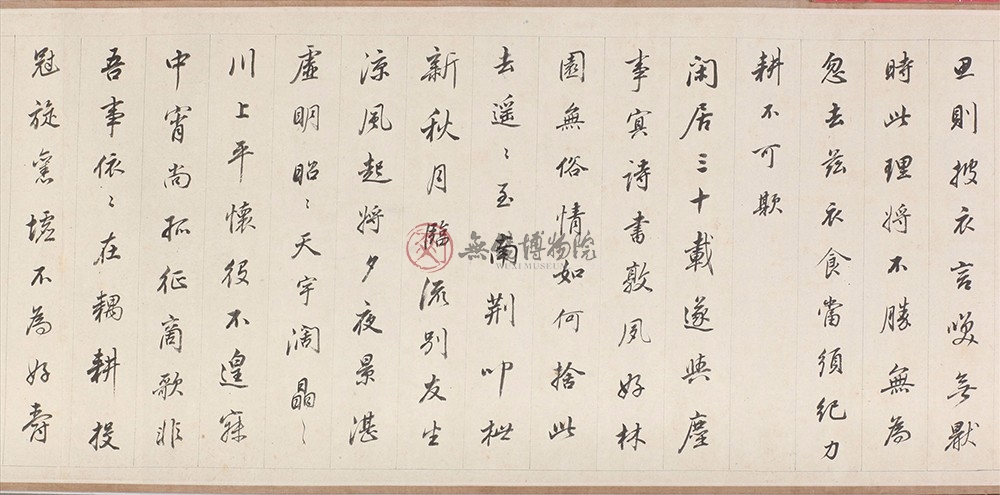 思則披衣言咲無厭
時此理將不勝無為
忽去茲衣食當須紀力
耕不可欺
閑居三十載遂與塵
事冥詩書敦夙好林
園無俗情如何捨此
去遥〻至南荊叩枻
新秋月臨流別友生
涼風起將夕夜景湛
虛明昭〻天宇闊皛〻
川上平懷役不遑寐
中宵尚孤征商歌非
吾事依〻在耦耕投
冠旋舊墟不為好爵
無錫博物院
WUXI MUSEUM